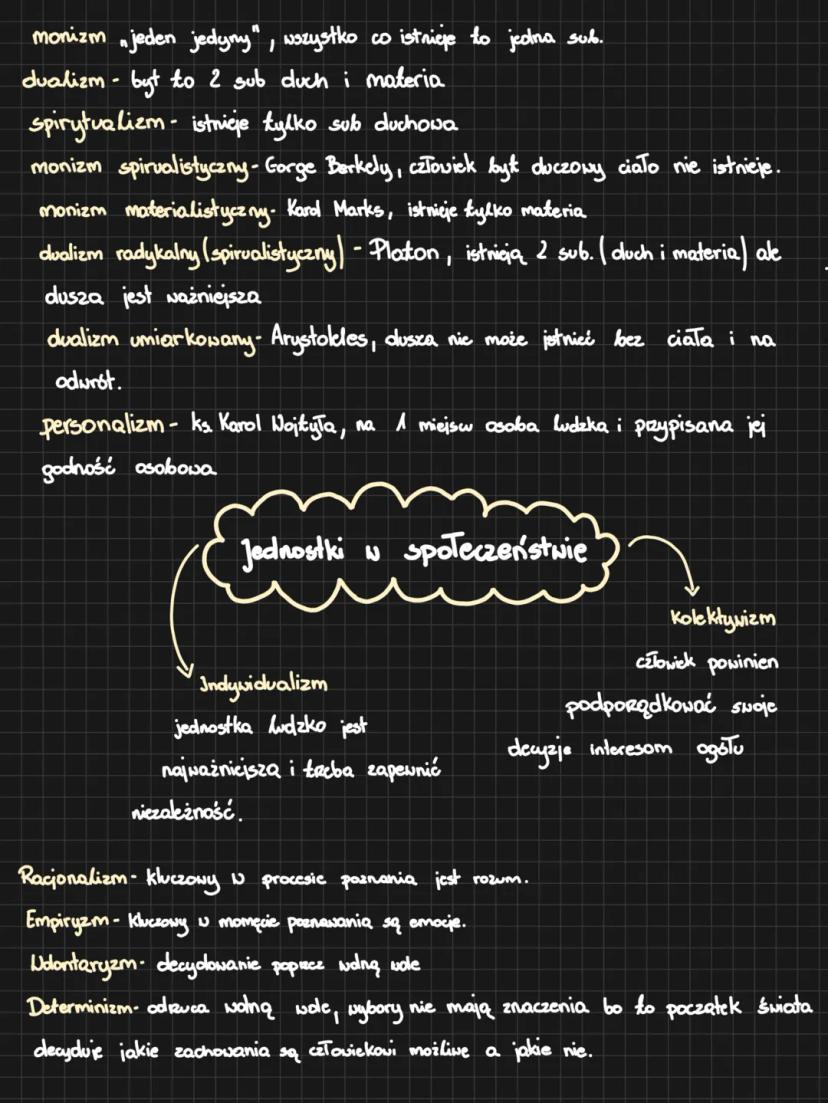 monizm „jeden jedyny", wszystko co istnieje to jedna sub.
dualizm - byt to 2 sub duch i materia
spirytualizm - istnieje tylko sub duchowa
monizm spirualistyczny - Gorge Berkely, człowiek byt duczowy ciało nie istnieje.
monizm materialistyczny - Karol Marks, istnieje tylko materia
dualizm radykalny (spirualistyczny) - Platon, istnieją 2 sub. (duch i materia) ale
dusza jest ważniejsza
dualizm umiarkowany - Arystoteles, dusza nie może istnieć bez ciała i na
odwrót.
personalizm - ks. Karol Wojtyła, na 1 miejscu osoba ludzka i przypisana jej
godność osobowa
Jednostki w społeczeństwie
Kolektywizm
człowiek powinien
podporządkować swoje
decyzje interesom ogółu
Indywidualizm
jednostka ludzko jest
najważniejsza i trzeba zapewnić
niezależność.
Racjonalizm - kluczowy w procesie poznania jest rozum.
Empiryzm - kluczowy w momęcie poznawania są emocje.
Wolontaryzm - decydowanie poprzez wolną wole
Determinizm - odrzuca wolną wole, wybory nie mają znaczenia bo to początek świata
decyduje jakie zachowania są człowiekowi możliwe a jakie nie.